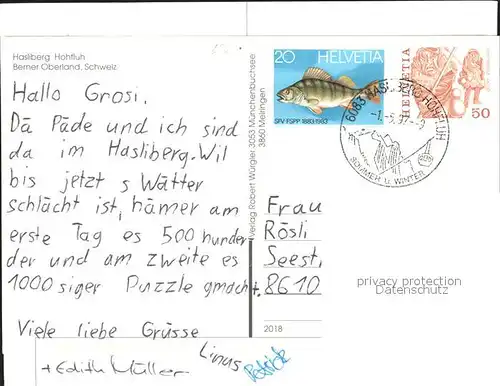 Hasliberg Hohfluh
Berner Oberland, Schweiz
Hallo Grosi.
Dä Päde und ich sind
da im Hasliberg. Wil
bis jetzt s Wätter
schlächt ist, hämer am
erste Tag es 500 hunder-
der und am zweite es
1000 siger Puzzle gmacht.
Viele liebe Grüsse
+ Edith Müller
Linus
Patrick
Verlag Robert Würgler, 3053 Münchenbuchsee
3860 Meiringen
20 HELVETIA
SFV FSPP 1883-1983
HELVETIA
50
6083 HASLIBERG HOHFLUH
SOMMER u. WINTER
Frau
Rösli
Seest.
8610
privacy protection
Datenschutz
2018